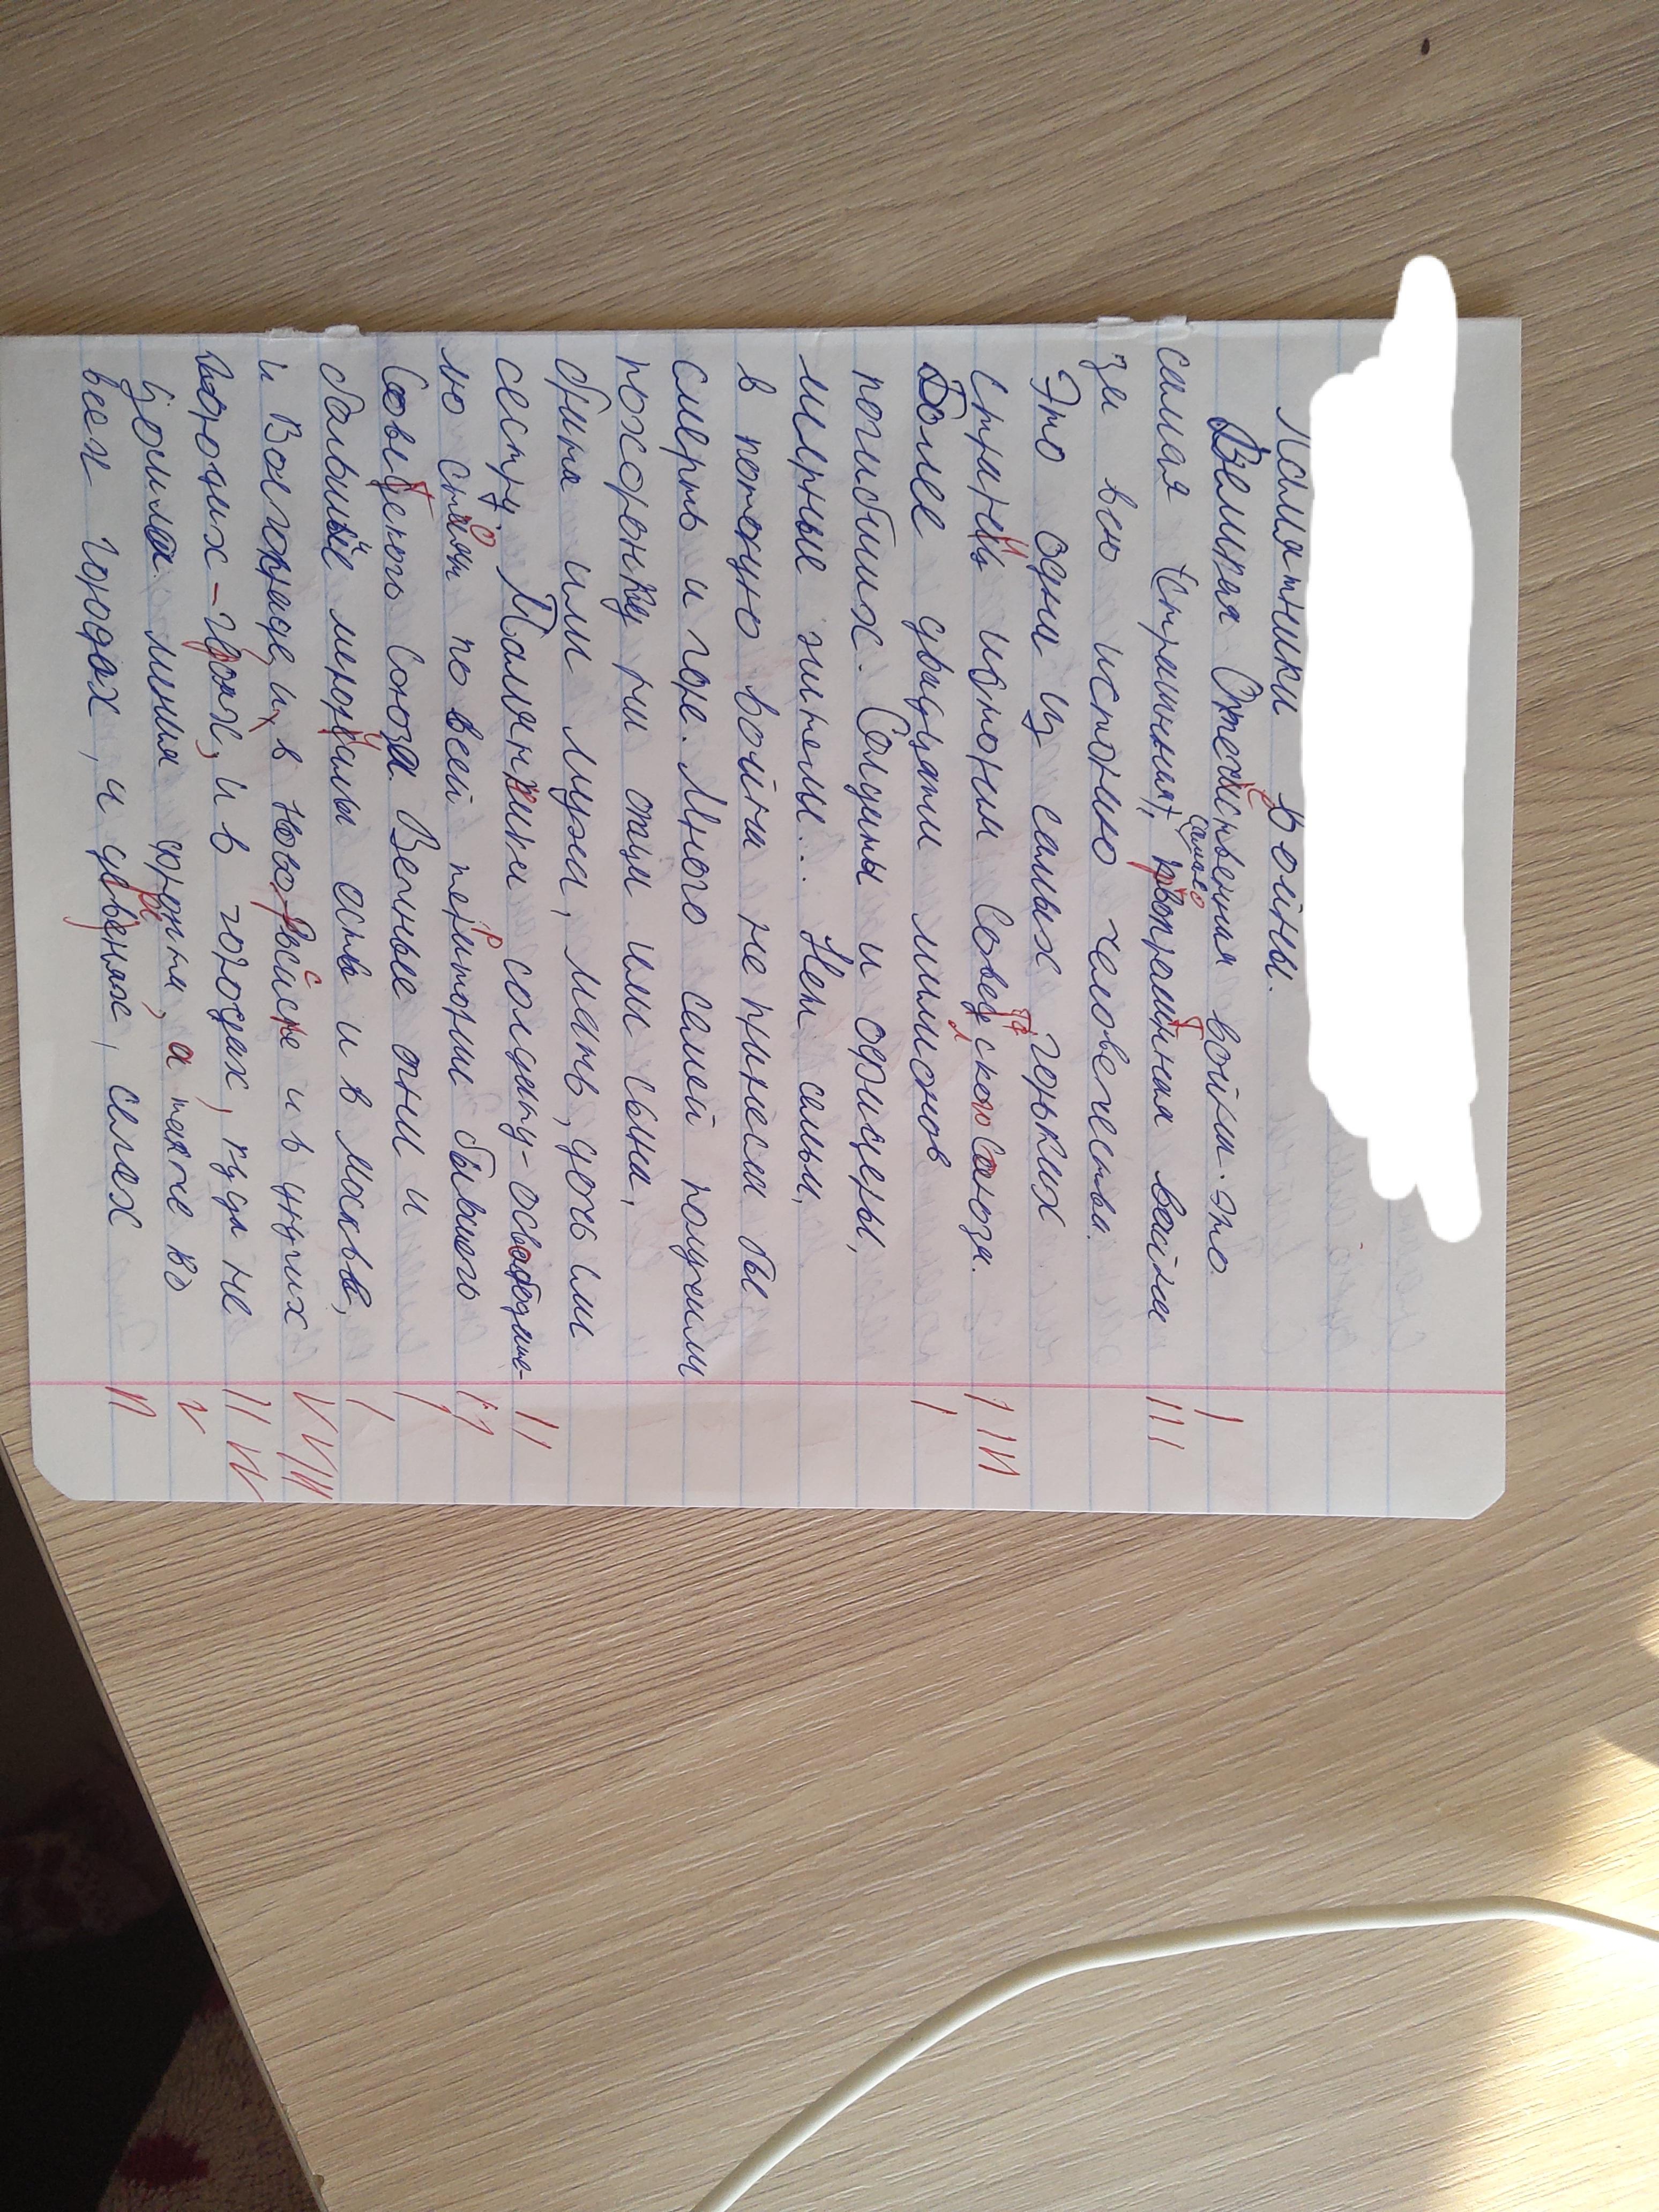 Памятники войны.
Великая Отечественная война - это
самая страшная, самая кровопролитная война
за всю историю человечества.
Это одна из самых горьких
страниц истории Советского Союза.
Более двадцати миллионов
погибших. Солдаты и офицеры,
мирные жители... Нет семьи,
в которую война не принесла бы
смерть и горе. Много семей получили
похоронку на отца или сына,
брата или мужа, мать, дочь или
сестру. Памятники солдату-освободите-
лю стоят по всей территории бывшего
Советского Союза. Вечные огни и
большие мемориалы есть и в москве,
и Волгограде, и в Новороссийске и в других
городах - и в городах, куда не
дошла линия фронта, а также во
всех городах, и деревнях, селах